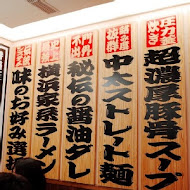 圧力釜炊き
超濃厚豚骨スープ
中太ストレート麺
門外不出
秘伝の醤油ダレ
横浜家系ラーメン
味のお好み選択